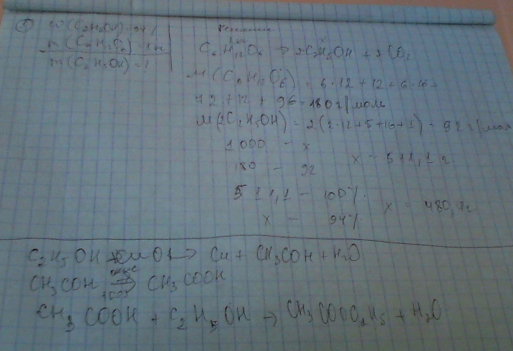 W(C₂H₅OH)=94%
m(C₆H₁₂O₆)=1кг
m(C₂H₅OH)-?
Решение
C₆H₁₂O₆ → 2C₂H₅OH + 2CO₂
M(C₆H₁₂O₆) = 6·12+12+6·16=
72+12+96=180г/моль
M(2C₂H₅OH)=2(2·12+5+16+1)=92г/моль
1000 - x
180 - 92 x = 511,1 г
511,1 - 100%
x - 94% x = 480,4г
C₂H₅OH + CuO → Cu + CH₃COH + H₂O
CH₃COH → CH₃COOH
CH₃COOH + C₂H₅OH → CH₃COOC₂H₅ + H₂O